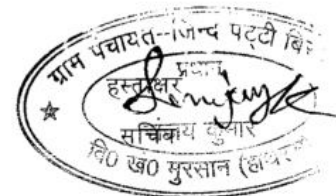 ग्राम पचायत--जिन्द पट्टी बि
प्रधान
हस्ताक्षर
कुमार
वि0 ख0 मुरसान (हाथर